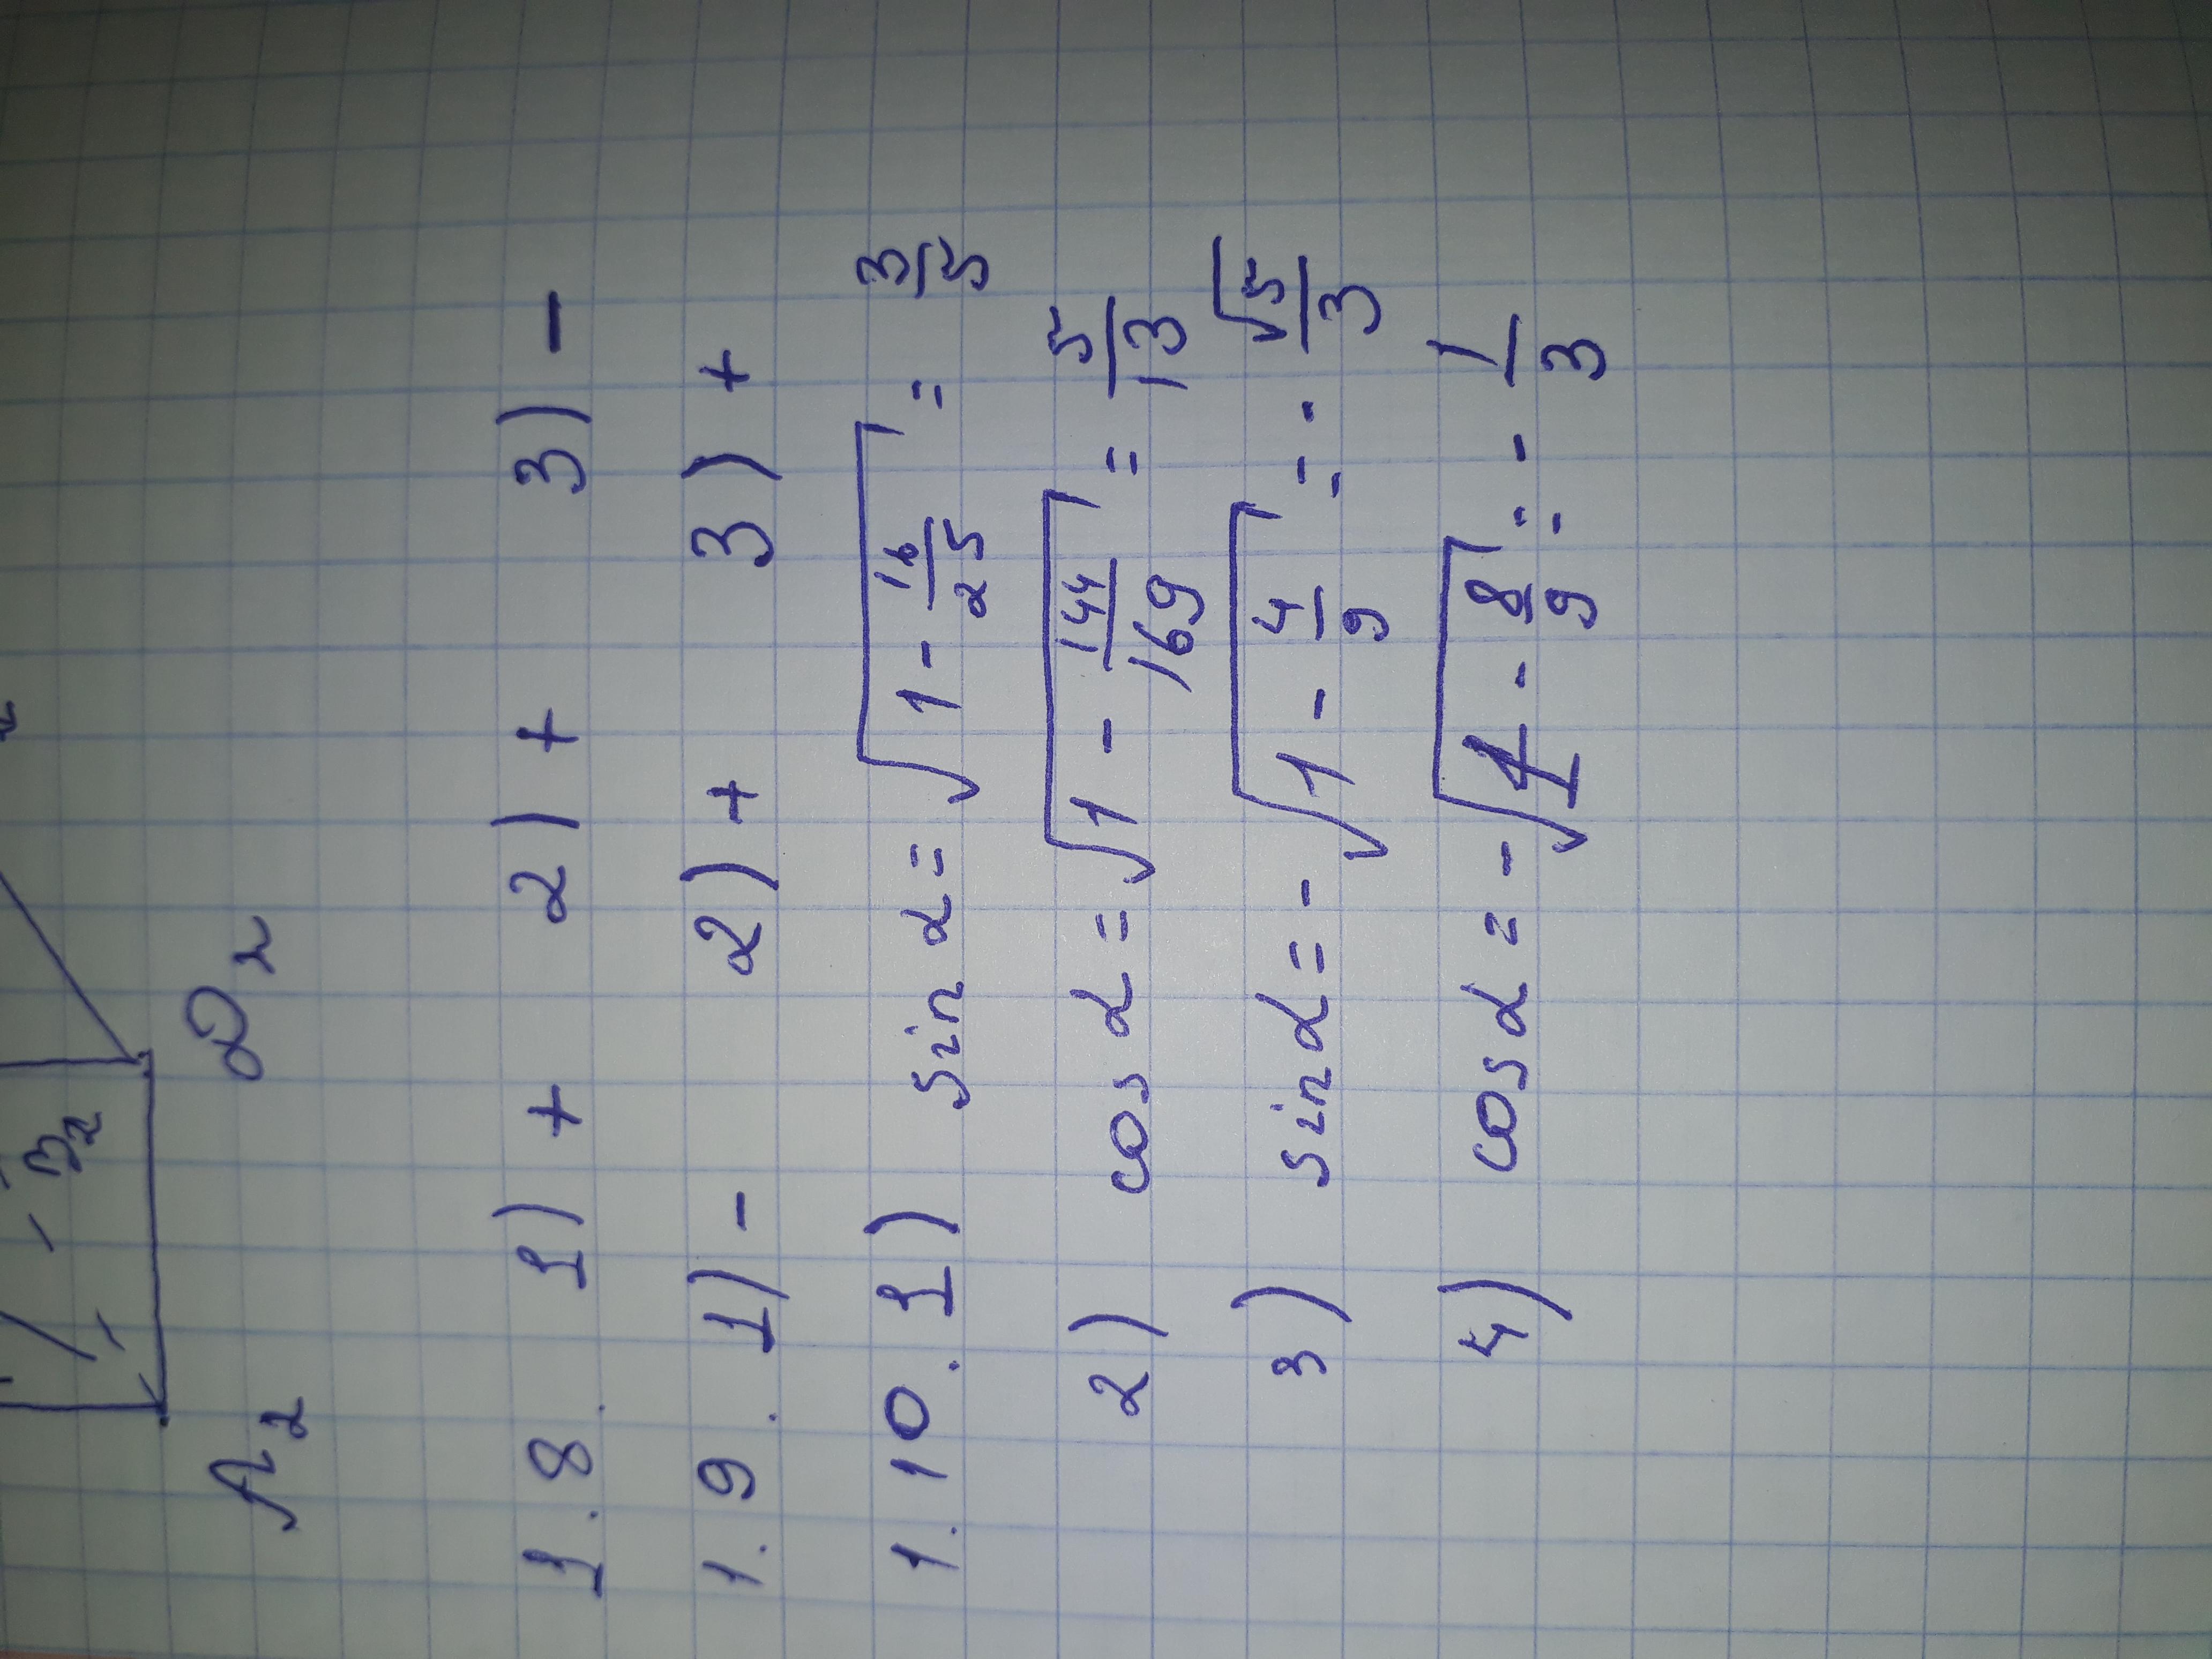 З₂
A₂ D₂
1.8. 1) + 2) + 3) -
1.9. 1) - 2) + 3) +
1.10. 1) sin α = √(1 - 16/25) = 3/5
2) cos α = √(1 - 144/169) = 5/13
3) sin α = - √(1 - 4/9) = - √5/3
4) cos α = - √(1 - 8/9) = - 1/3